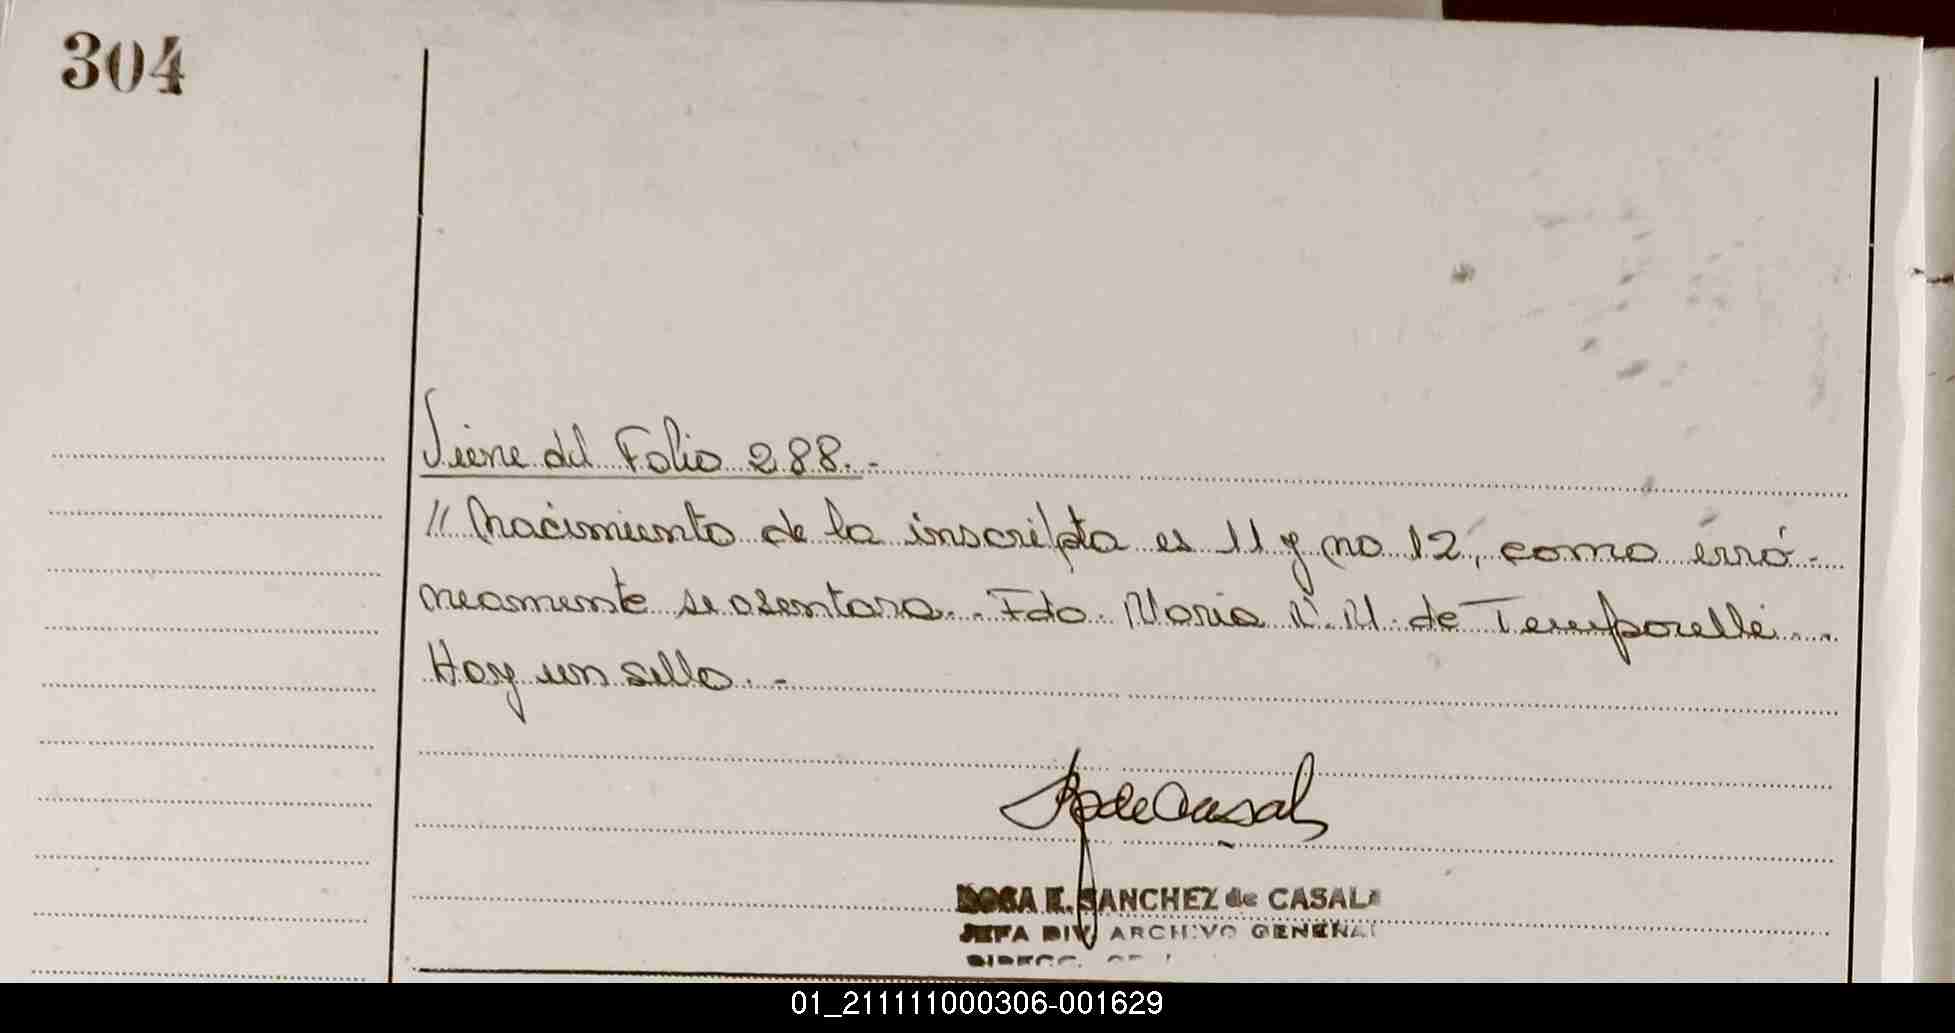 304
Viene del Folio 288.-
// Nacimiento de la inscripta es 11 y no 12, como erró-
neamente se asentara.. Fdo. Maria de Temporelli...
Hay un sello. -
R de Casal
ROSA E. SANCHEZ de CASAL
JEFA DIV. ARCHIVO GENERAL
DIRECC.
01_211111000306-001629